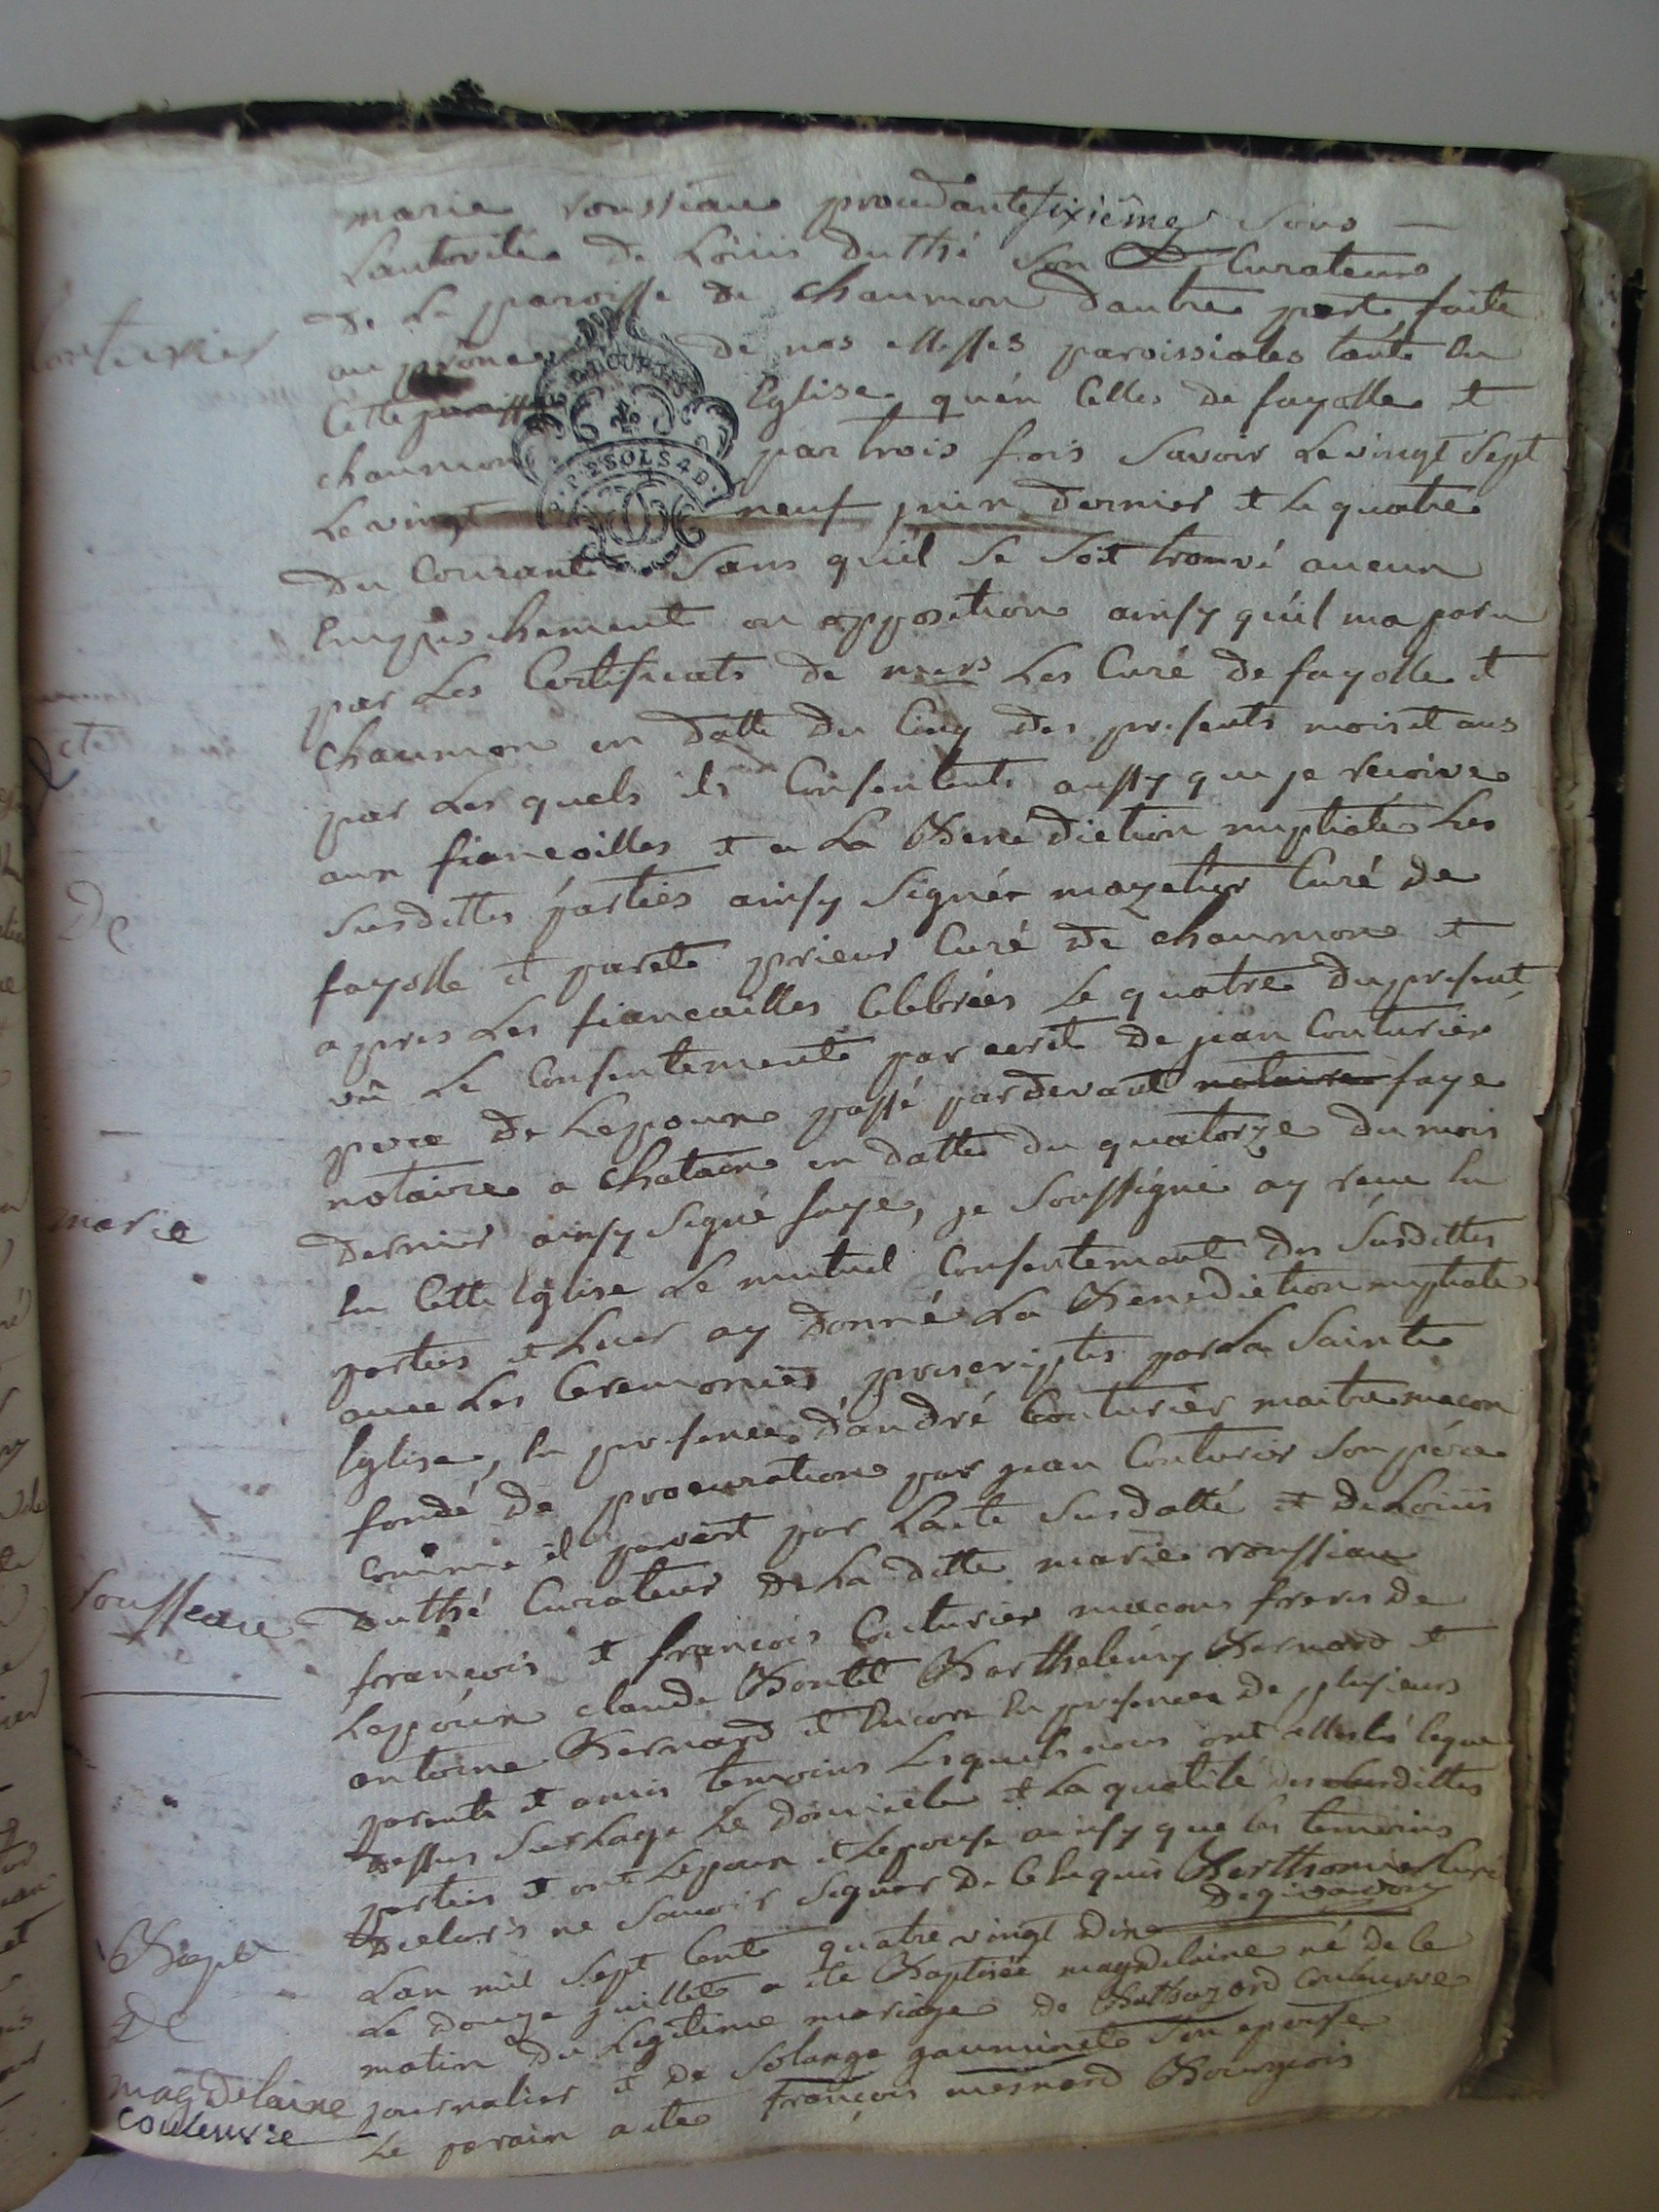 marie roussiaue procedante sixième sous
Lautorité de Loüis duthé son Curateur
de La paroisse de Chaumon dautre part faite
au prône de nos Messes paroissiales tant en
Cette paroisse Eglise quén Celles de fayolle et
chaumon par trois fois Savoir Le vingt Sept
Le vingt neuf juin dernier et Le quatre
du Courant Sans quil Se Soit trouvé aucun
Empeschement ou opposition ainsy quil ma paru
par Les Certificats de mrs Les Curé de fayolle et
Chaumon en datte du Cinq des presents mois et ans
par Les quels ils Consentent aussy que je recoive
aux fiancailles et a La Benediction nuptiale Les
Susdittes parties ainsy Signés mazetier Curé de
fayolle et parete prieur Curé de chaumon et
apres Les fiancailles Celebrées Le quatre du present
vû Le Consentement par ecrit de jean Couturier
pere de Lepoux passé pardevant notaire faye
notaire a Chatain en datte du quatorze du mois
dernier ainsy Signé faye, je Soussigné ay recu en
En Cette Eglise Le mutuel Consentement des Susdittes
parties et Leur ay donné La Benediction nuptiale
avec Les Ceremonies prescriptes par La Sainte
Eglise, En presence dandré Couturier maitre macon
fondé de procuration par jean Couturier Son pére
Comme il paroit par Lacte Susdatté et de Loüis
Duthé Curateur de La ditte marie roussiau
francois et françois Couturier macons freres de
Lepoux claude Boutet Barthelémy Bernard et
antoine Bernard et Encore En presence de plusieurs
parents et amis temoins Lesquels nous ont attesté Ceque
dessus Sur Lage Le domicile et La qualité des Susdittes
parties et ont Lepoux et Lepouse ainsy que les temoins
declarés ne Savoir Signer de Ce Enquis Berthomier Curé
Lan mil Sept Cent quatre vingt dix
Le douze juillet a eté Baptisée magdelaine né de Ce
matin du Legitime mariage de Balthazard Couleuvre
journalier et de Solange gaumineté Son epouse
Le parain a eté François mesnard Bourgeois
Couturier
et
De
marie
rousseau
Bapt
De
magdelaine
couleuvre
DP 2SOLS 4D.